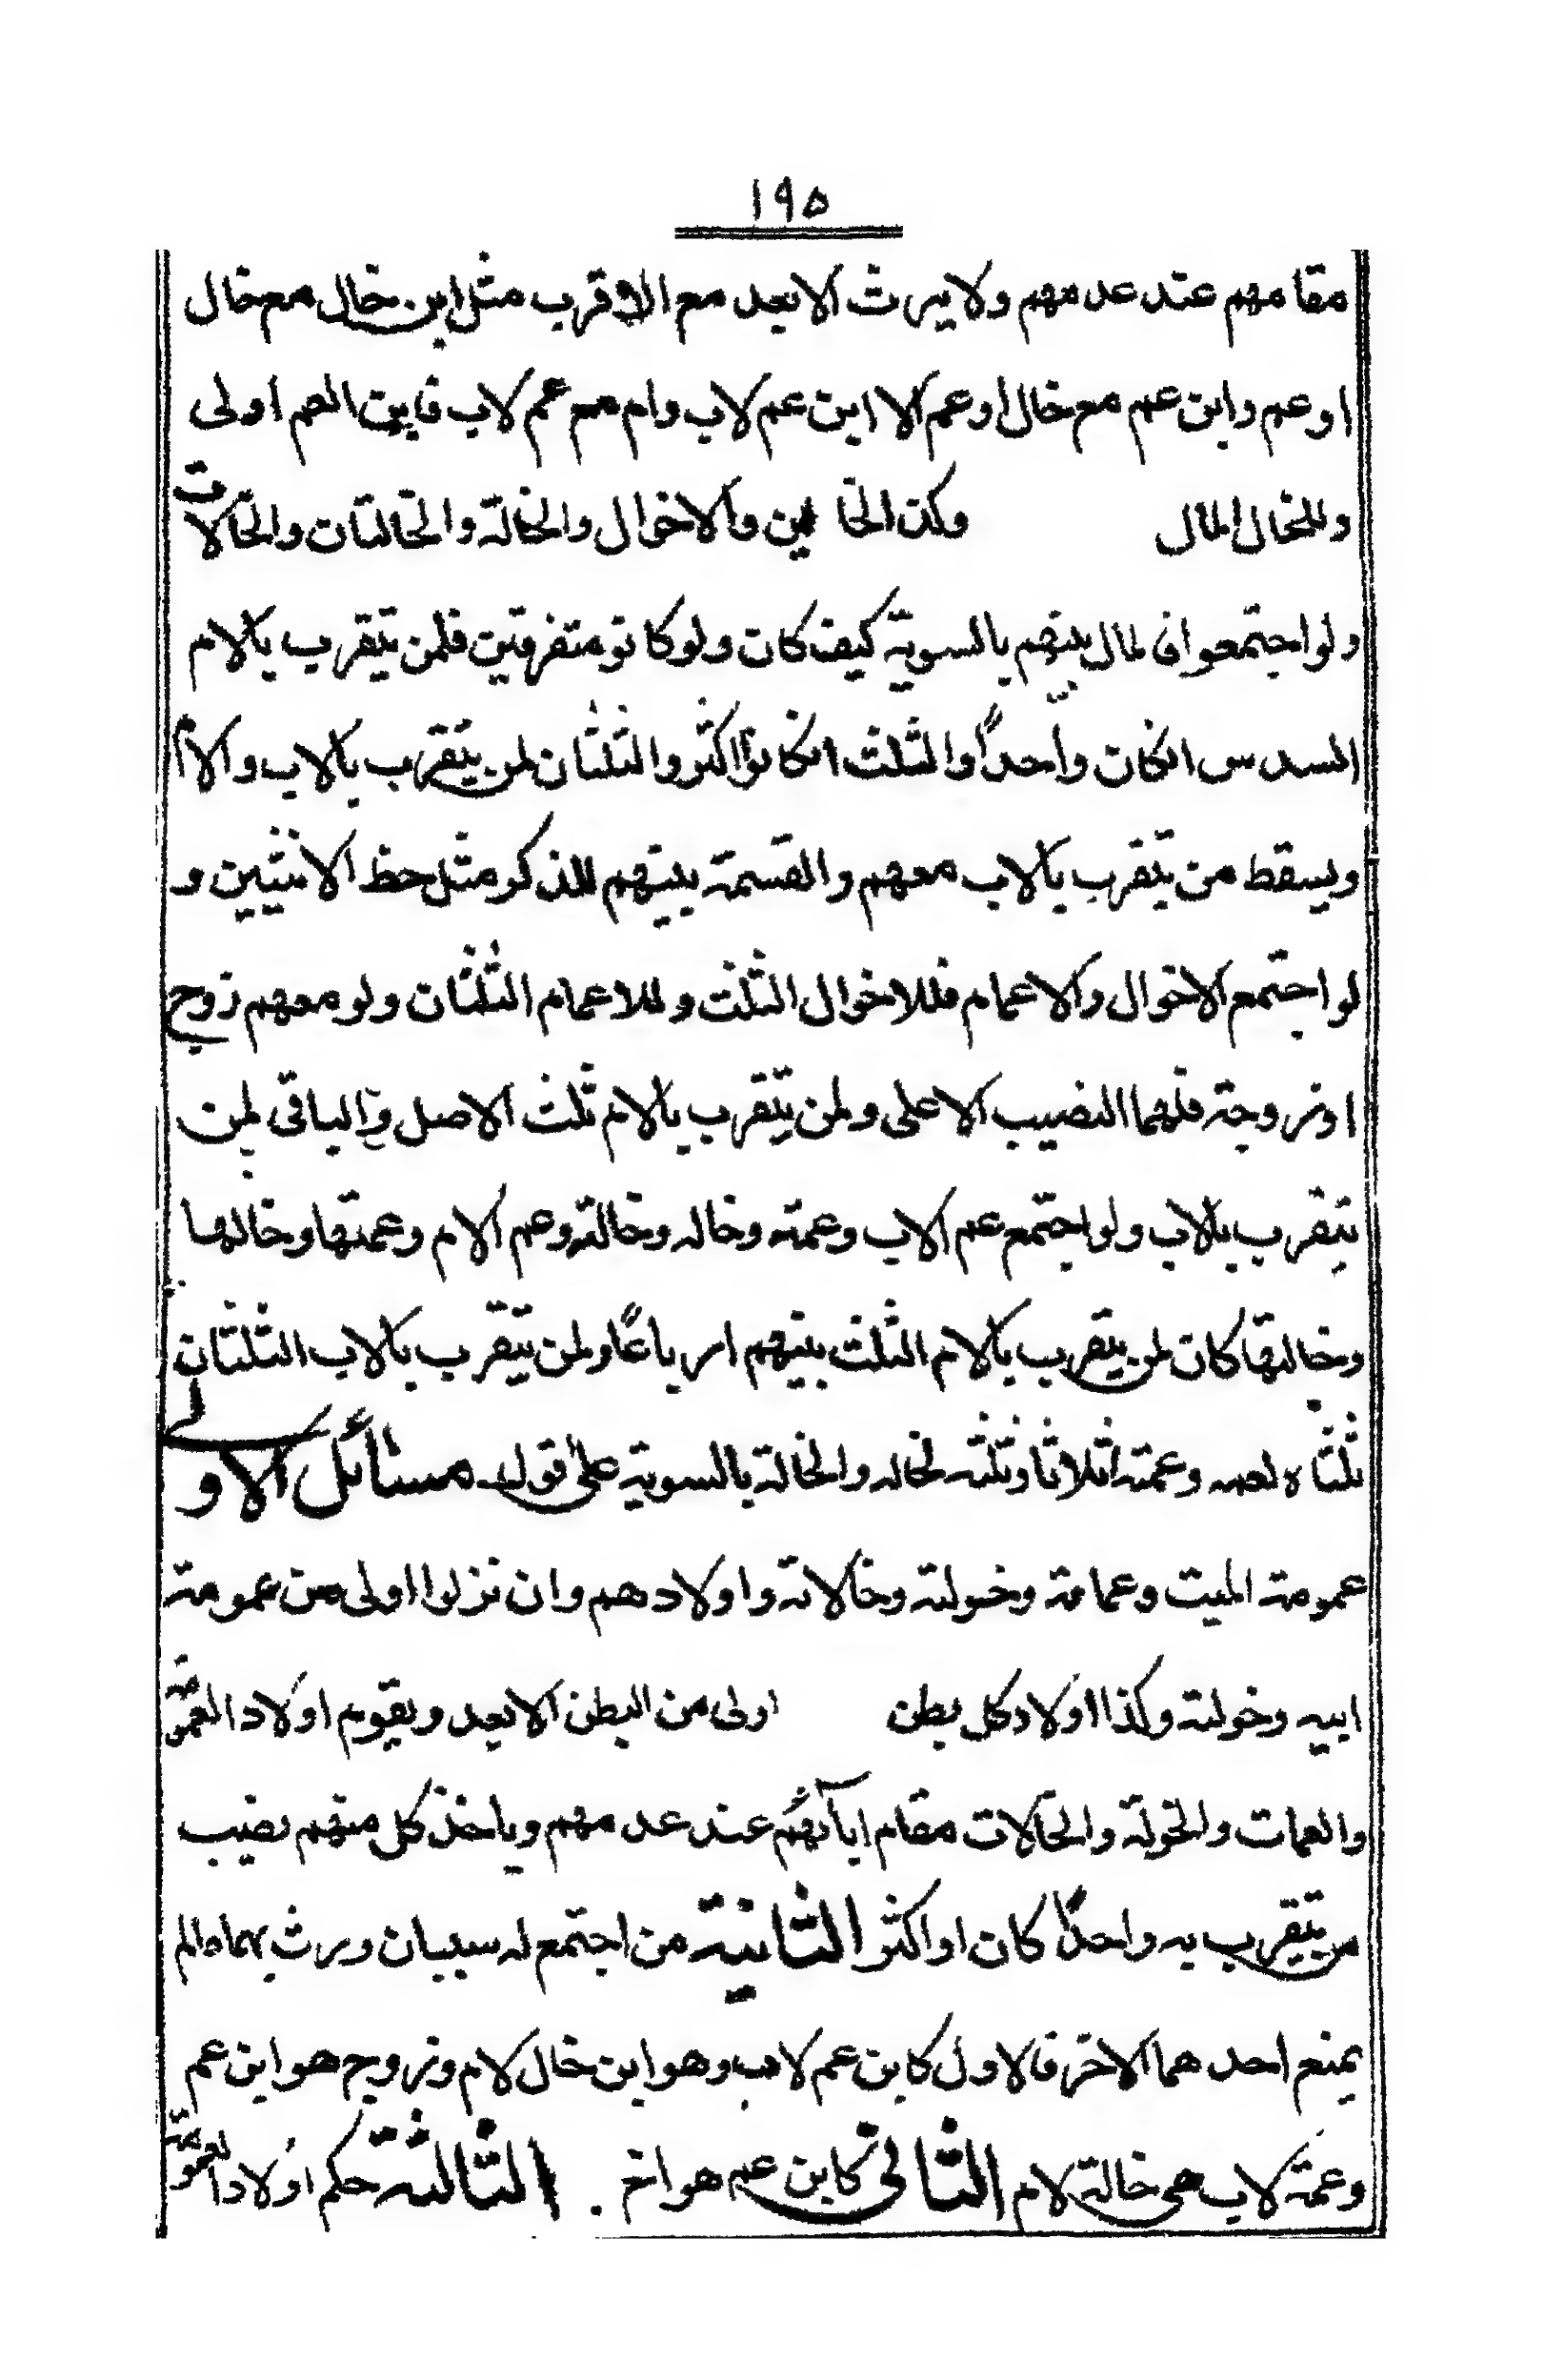 ١٩٥
مقامهم عند عدمهم ولا يرث الابعد مع الاقرب مثل ابن خال مع خال
او عم وابن عم مع خال او عم الا ابن عم لاب وام مع عم لاب فابن العم اولى
وللخال المال وكذا الخالين والاخوال والخالة والخالتان والخالات
ولو اجتمعوا فالمال بينهم بالسوية كيف كان ولو كانو متفرقين فلمن يتقرب بالام
السدس انكان واحداً والثلث انكانوا اكثر والثلثان لمن يتقرب بالاب والام
ويسقط من يتقرب بالاب معهم والقسمة بينهم للذكر مثل حظ الانثيين و
لو اجتمع الاخوال والاعمام فللاخوال الثلث وللاعمام الثلثان ولو معهم زوج
او زوجة فلهما النصيب الاعلى ولمن يتقرب بالام ثلث الاصل والباقى لمن
يتقرب بالاب ولو اجتمع عم الاب وعمته وخاله وخالته وعم الام وعمتها وخالها
وخالتها كان لمن يتقرب بالام الثلث بينهم ارباعًا ولمن يتقرب بالاب الثلثان
ثلثاه لعمه وعمته اثلاثا وثلثه لخاله والخالة بالسوية على قول مسائل الاولى
عمومة الميت وعماته وخولته وخالاته واولادهم وان نزلوا اولى من عمومة
ابيه وخولته وكذا اولاد كل بطن اولى من البطن الابعد ويقوم اولاد العمومة
والعمات والخولة والخالات مقام ابآئهم عند عدمهم وياخذ كل منهم نصيب
من يتقرب به واحدًا كان او اكثر الثانية من اجتمع له سببان ورث بهما مالم
يمنع احدهما الاخر فالاول كابن عم لاب وهو ابن خال لام وزوج هو ابن عم
وعمة لاب هى خالة لام الثانى كابن عم هو اخ . الثالثة حكم اولاد العمومة